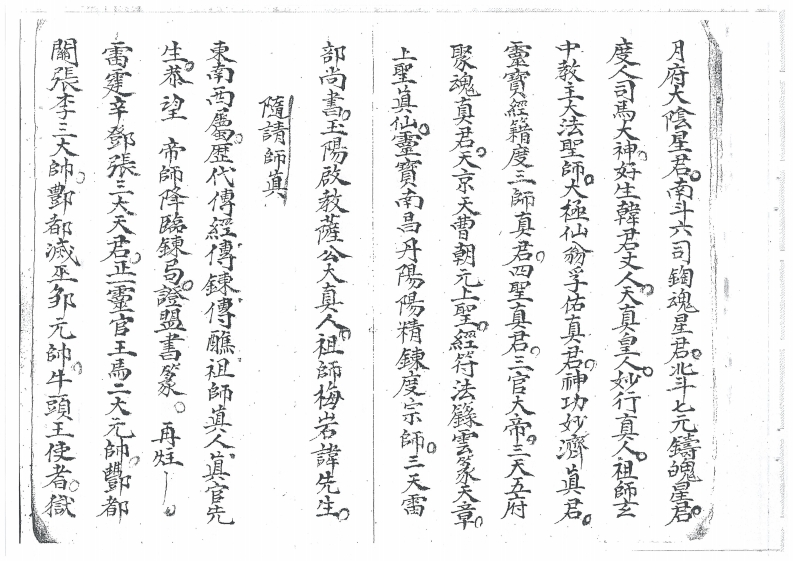 月府太陰星君。南斗六司鍧魂星君。北斗七元鑄魄星君。
度人司馬大神。好生韓君丈人。天真皇人。妙行真人。祖師玄
中教主大法聖師。太極仙翁孚佑真君。神功妙濟真君。
靈寶經籍度三師真君。四聖真君。三官大帝。三天五府
聚魂真君。天京天曹朝元上聖。經符法籙雲篆天章。
上聖真仙。靈寶南昌丹陽陽精鍊度宗師。三天雷
部尚書。玉陽啟教薩公大真人。祖師梅岩諱先生。
隨請師真
東南西蜀。歷代傳經傳鍊傳醮祖師真人。真官先
生。恭望　帝師降臨鍊局。證盟書篆。再炷
雷霆辛鄧張三大天君。正一靈官王馬二大元帥。酆都
關張李三大帥。酆都滅巫鄒元帥。牛頭王使者。獄